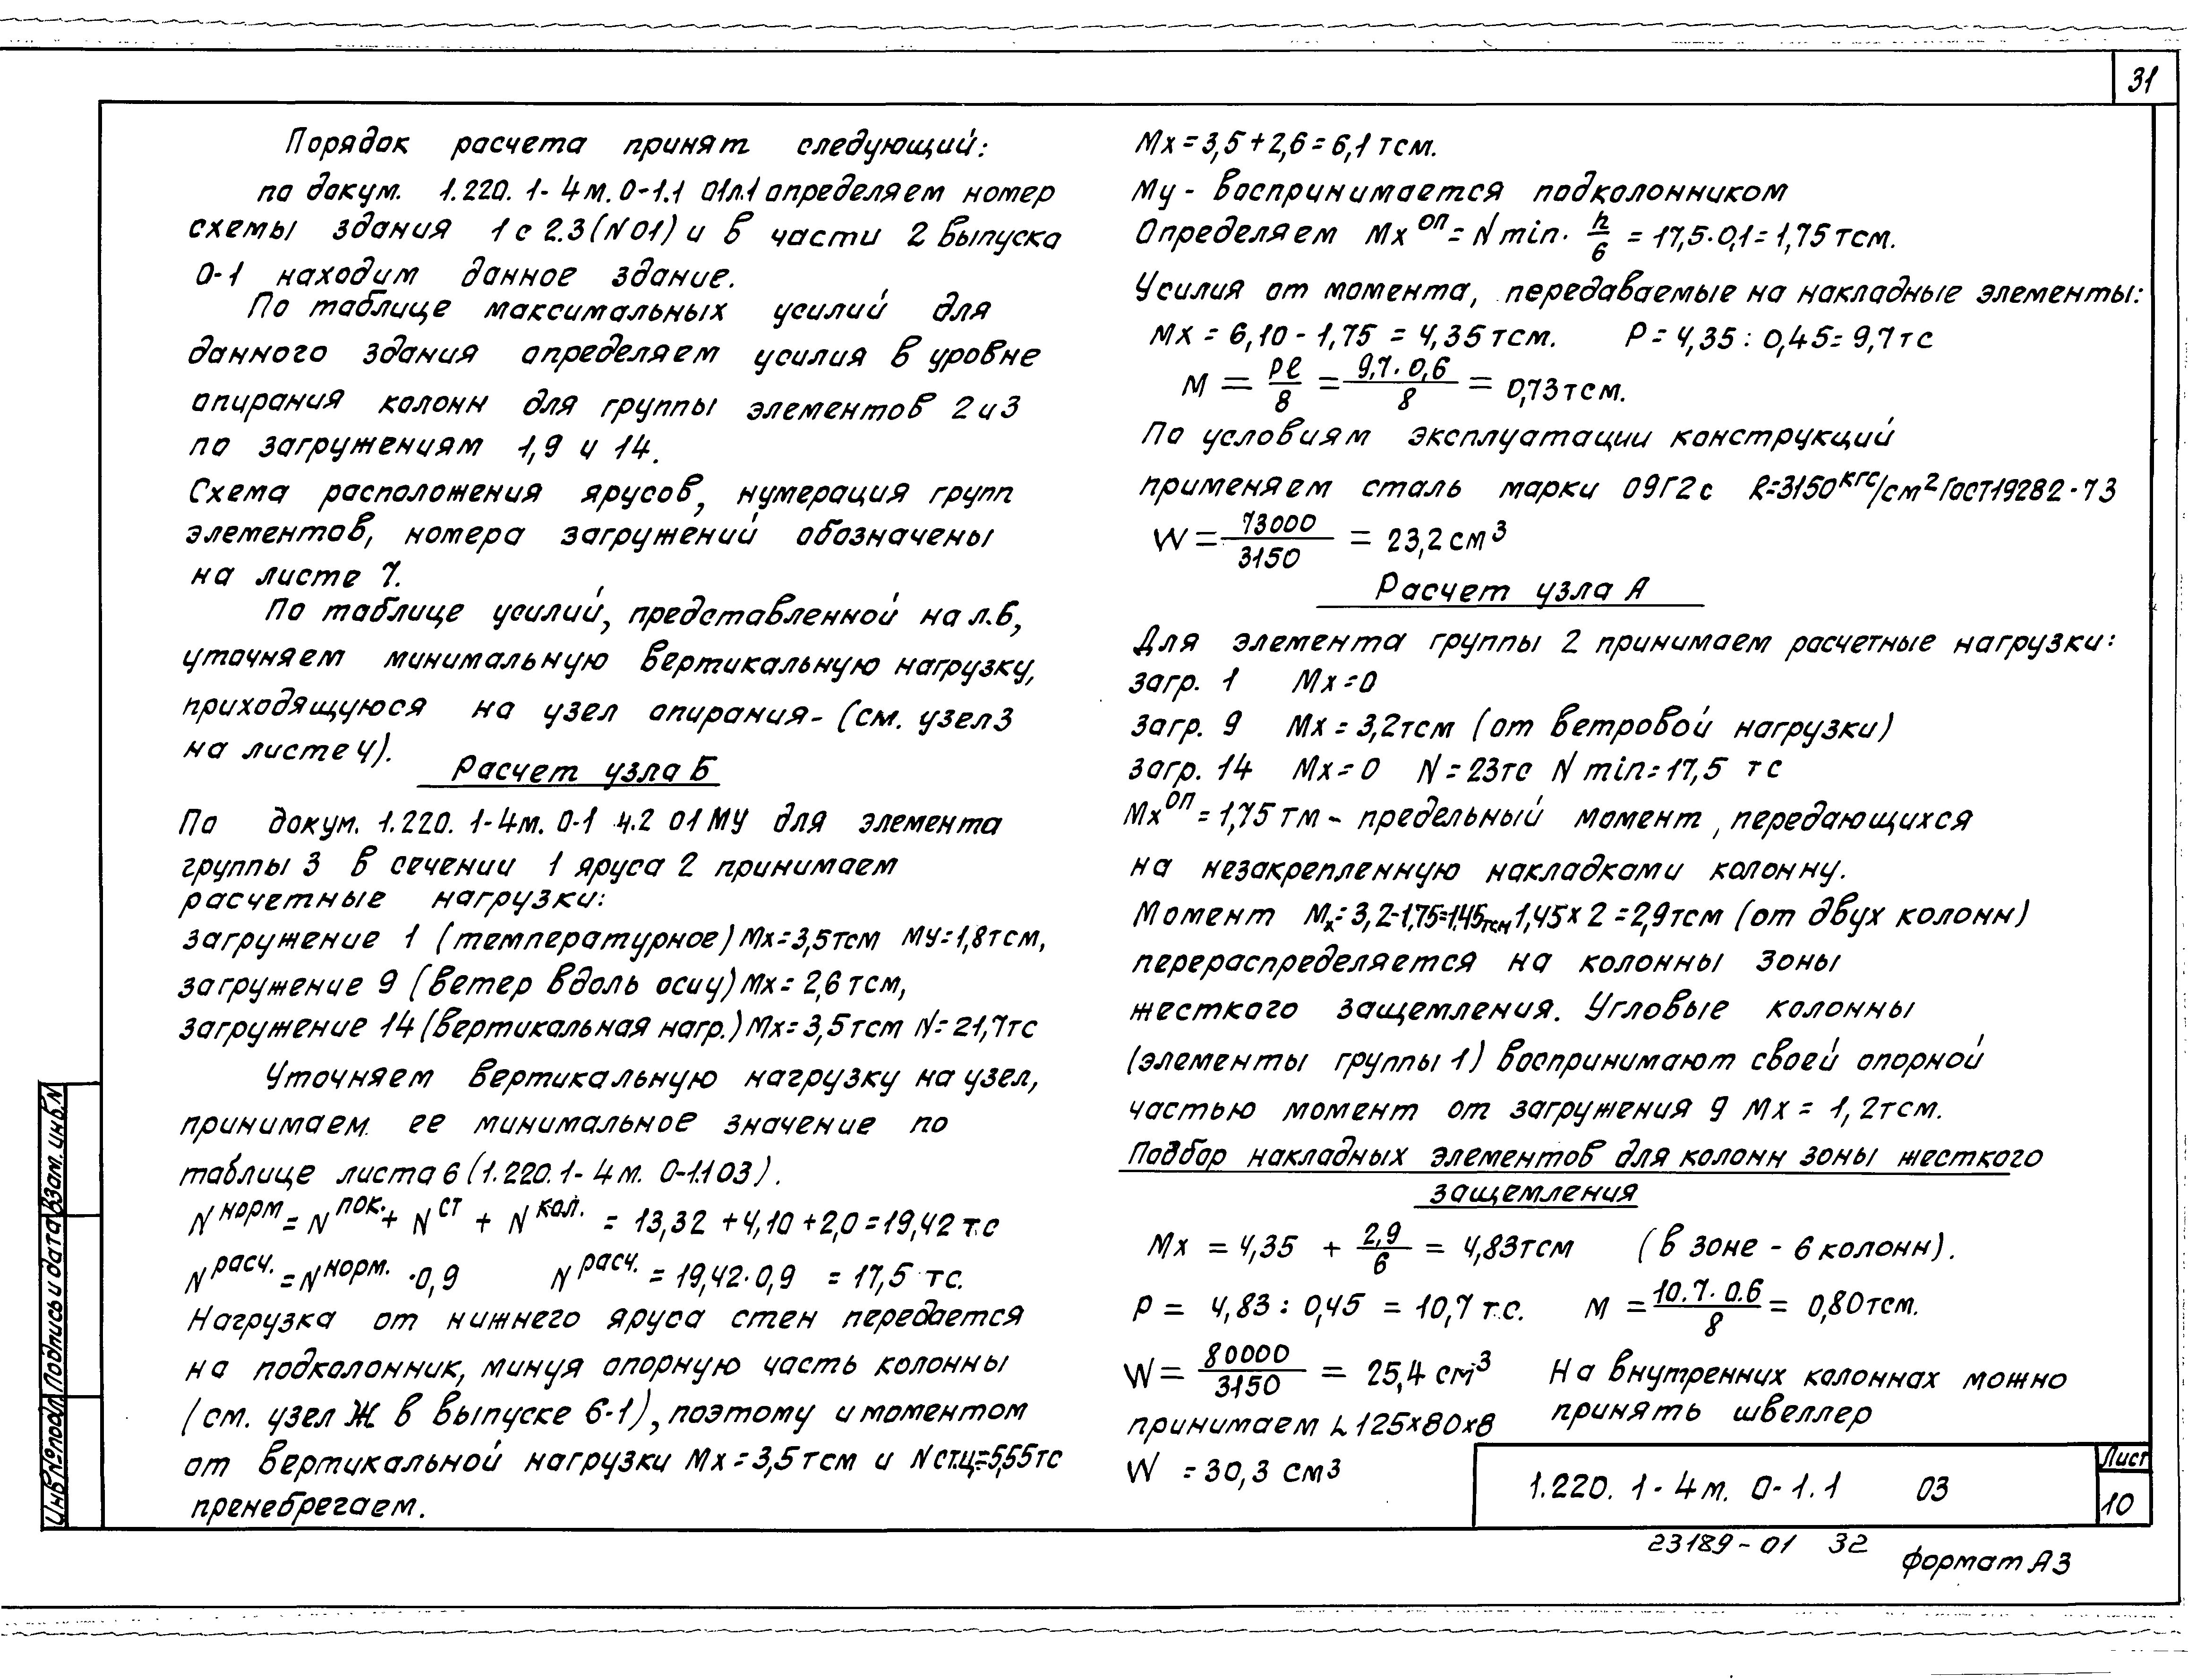 31
Порядок расчета принят следующий:
по докум. 1.220. 1-4м. 0-1.1 01л.1 определяем номер
схемы здания 1с 2.3 (N01) и в части 2 выпуска
0-1 находим данное здание.
По таблице максимальных усилий для
данного здания определяем усилия в уровне
опирания колонн для группы элементов 2 и 3
по загружениям 1,9 и 14.
Схема расположения ярусов, нумерация групп
элементов, номера загружений обозначены
на листе 7.
По таблице усилий, представленной на л.6,
уточняем минимальную вертикальную нагрузку,
приходящуюся на узел опирания- (см. узел 3
на листе 4).
Расчет узла Б
По докум. 1.220. 1-4м. 0-1 ч.2 01 МУ для элемента
группы 3 в сечении 1 яруса 2 принимаем
расчетные нагрузки:
загружение 1 (температурное) Mx=3,5тсм My=1,8тсм,
загружение 9 (ветер вдоль оси y) Mx= 2,6 тсм,
загружение 14 (вертикальная нагр.) Mx= 3,5тсм N= 21,7тс
Уточняем вертикальную нагрузку на узел,
принимаем ее минимальное значение по
таблице листа 6 (1.220.1- 4м. 0-1.1 03).
N норм = N пок. + N ст + N кол. = 13,32 +4,10 +2,0 =19,42 т.с
N расч. = N норм. ·0,9 N расч. = 19,42·0,9 = 17,5 тс.
Нагрузка от нижнего яруса стен передается
на подколонник, минуя опорную часть колонны
(см. узел Ж в выпуске 6-1), поэтому и моментом
от вертикальной нагрузки Mx=3,5 тсм и Nст.ц=5,55тс
пренебрегаем.
Mx = 3,5 + 2,6 = 6,1 тсм.
My - воспринимается подколонником
Определяем Mx оп = N min. h/6 = 17,5·0,1 = 1,75 тсм.
Усилия от момента, передаваемые на накладные элементы:
Mx = 6,10 - 1,75 = 4,35 тсм. P = 4,35 : 0,45 = 9,7 тс
M = Pl/8 = 9,7·0,6/8 = 0,73 тсм.
По условиям эксплуатации конструкций
применяем сталь марки 09Г2с R=3150 кгс/см2 ГОСТ19282-73
W = 73000/3150 = 23,2 см3
Расчет узла А
Для элемента группы 2 принимаем расчетные нагрузки:
загр. 1 Mx=0
загр. 9 Mx = 3,2тсм (от ветровой нагрузки)
загр. 14 Mx= 0 N = 23тс N min = 17,5 тс
Mx оп = 1,75 тм - предельный момент, передающихся
на незакрепленную накладками колонну.
Момент Mx= 3,2-1,75=1,45тсм 1,45 x 2 = 2,9тсм (от двух колонн)
перераспределяется на колонны зоны
жесткого защемления. Угловые колонны
(элементы группы 1) воспринимают своей опорной
частью момент от загружения 9 Mx = 1,2тсм.
Подбор накладных элементов для колонн зоны жесткого
защемления
Mx = 4,35 + 2,9/6 = 4,83тсм (в зоне - 6 колонн).
P = 4,83 : 0,45 = 10,7 т.с. M = 10.7·0.6/8 = 0,80тсм.
W = 80000/3150 = 25,4 см3 На внутренних колоннах можно
принимаем L 125x80x8 принять швеллер
W = 30,3 см3
1.220. 1-4м. 0-1.1 03
Лист
10
23189-01 32
формат А3
Инв.№подл. Подпись и дата Взам.инв.N